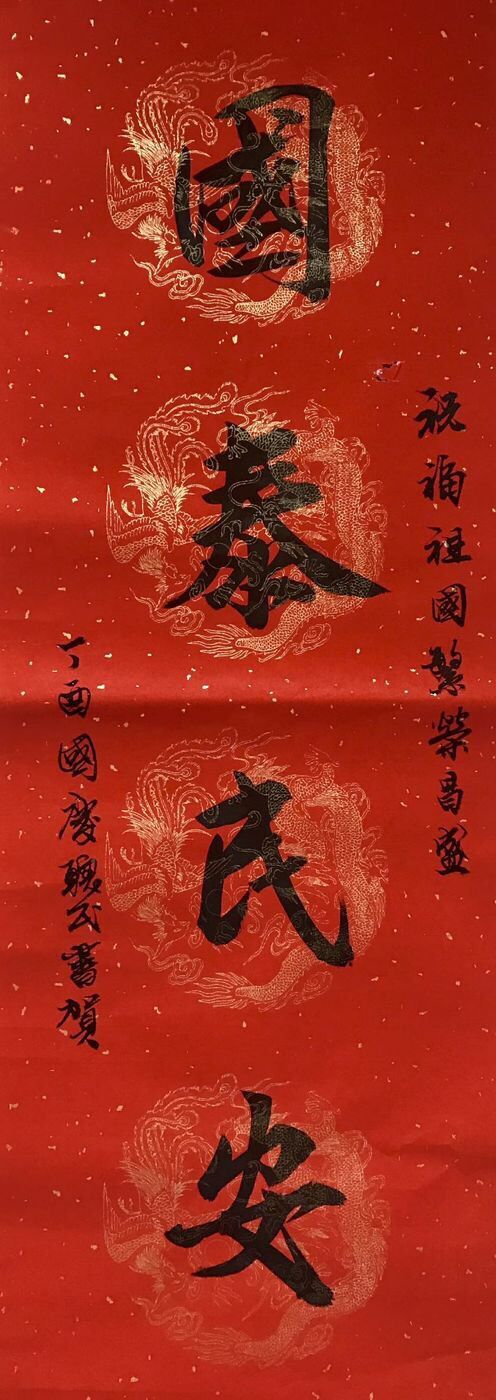 祝福祖國繁榮昌盛
國泰民安
丁酉國慶聯云書賀